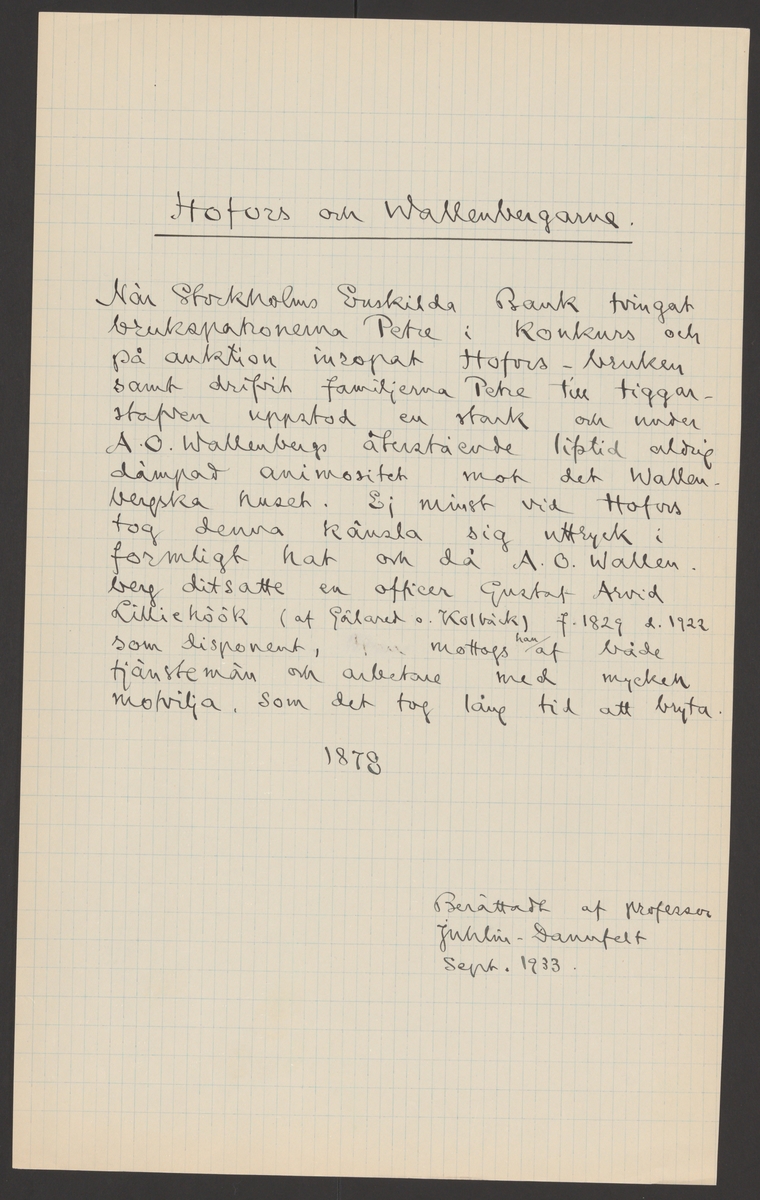 Hofors och Wallenbergarne.
När Stockholms Enskilda Bank tvingat
brukspatronerna Petre i konkurs och
på auktion inropat Hofors-bruken
samt drifvit familjerna Petre till tiggar-
stafven uppstod en stark och under
A.O. Wallenbergs återstående lifstid aldrig
dämpad animositet mot det Wallen-
bergska huset. Ej minst vid Hofors
tog denna känsla sig uttryck i
formligt hat och då A.O. Wallen-
berg ditsatte en officer Gustaf Arvid
Lilliehöök (af Gälared o. Kolbäck) f. 1829 d. 1922
som disponent, mottogs han af både
tjänstemän och arbetare med mycken
motvilja, som det tog lång tid att bryta.
1878
Berättadt af professor
Juhlin-Dannfelt
Sept. 1933.